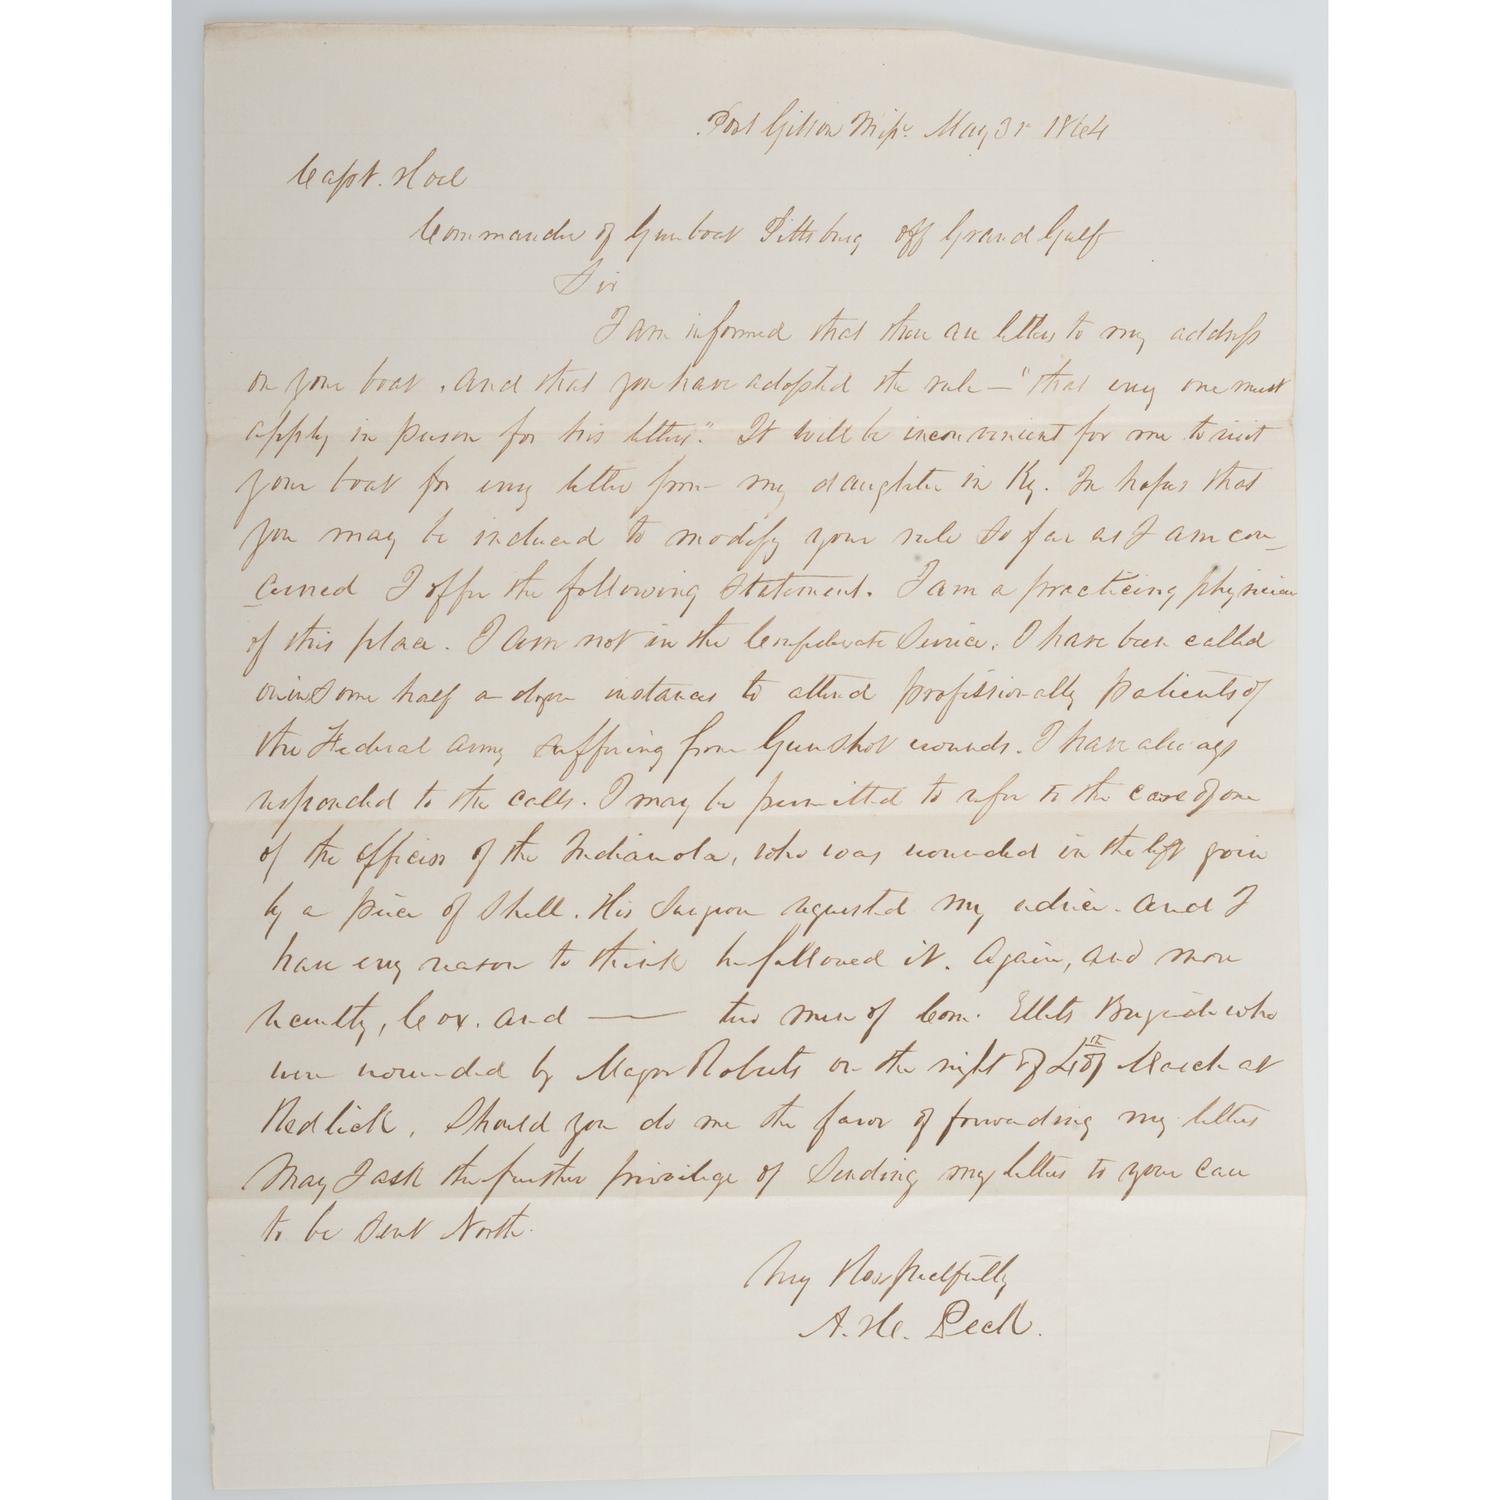 Port Gibson Miss. May 31 1864
Capt. Hoel
Commander of Gunboat Pittsburg off Grand Gulf
Sir
I am informed that there are letters to my address
on your boat. And that you have adopted the rule — "that every one must
apply in person for his letters". It will be inconvenient for me to visit
your boat for every letter from my daughter in Ky. In hopes that
you may be induced to modify your rule so far as I am con-
cerned I offer the following statement. I am a practicing physician
of this place. I am not in the Confederate Service. I have been called
on in some half a dozen instances to attend professionally patients of
the Federal Army suffering from Gunshot wounds. I have always
responded to the calls. I may be permitted to refer to the case of one
of the officers of the Indianola, who was wounded in the left groin
by a piece of shell. His Surgeon requested my advice. And I
have every reason to think he followed it. Again, and more
recently, Cox. and —— two men of Com. Ellets Brigade who
were wounded by Major Roberts on the night of of March at
Redlick. Should you do me the favor of forwarding my letters
May I ask the further privilege of sending my letters to your care
to be sent North.
Very Respectfully
A. H. Peck.